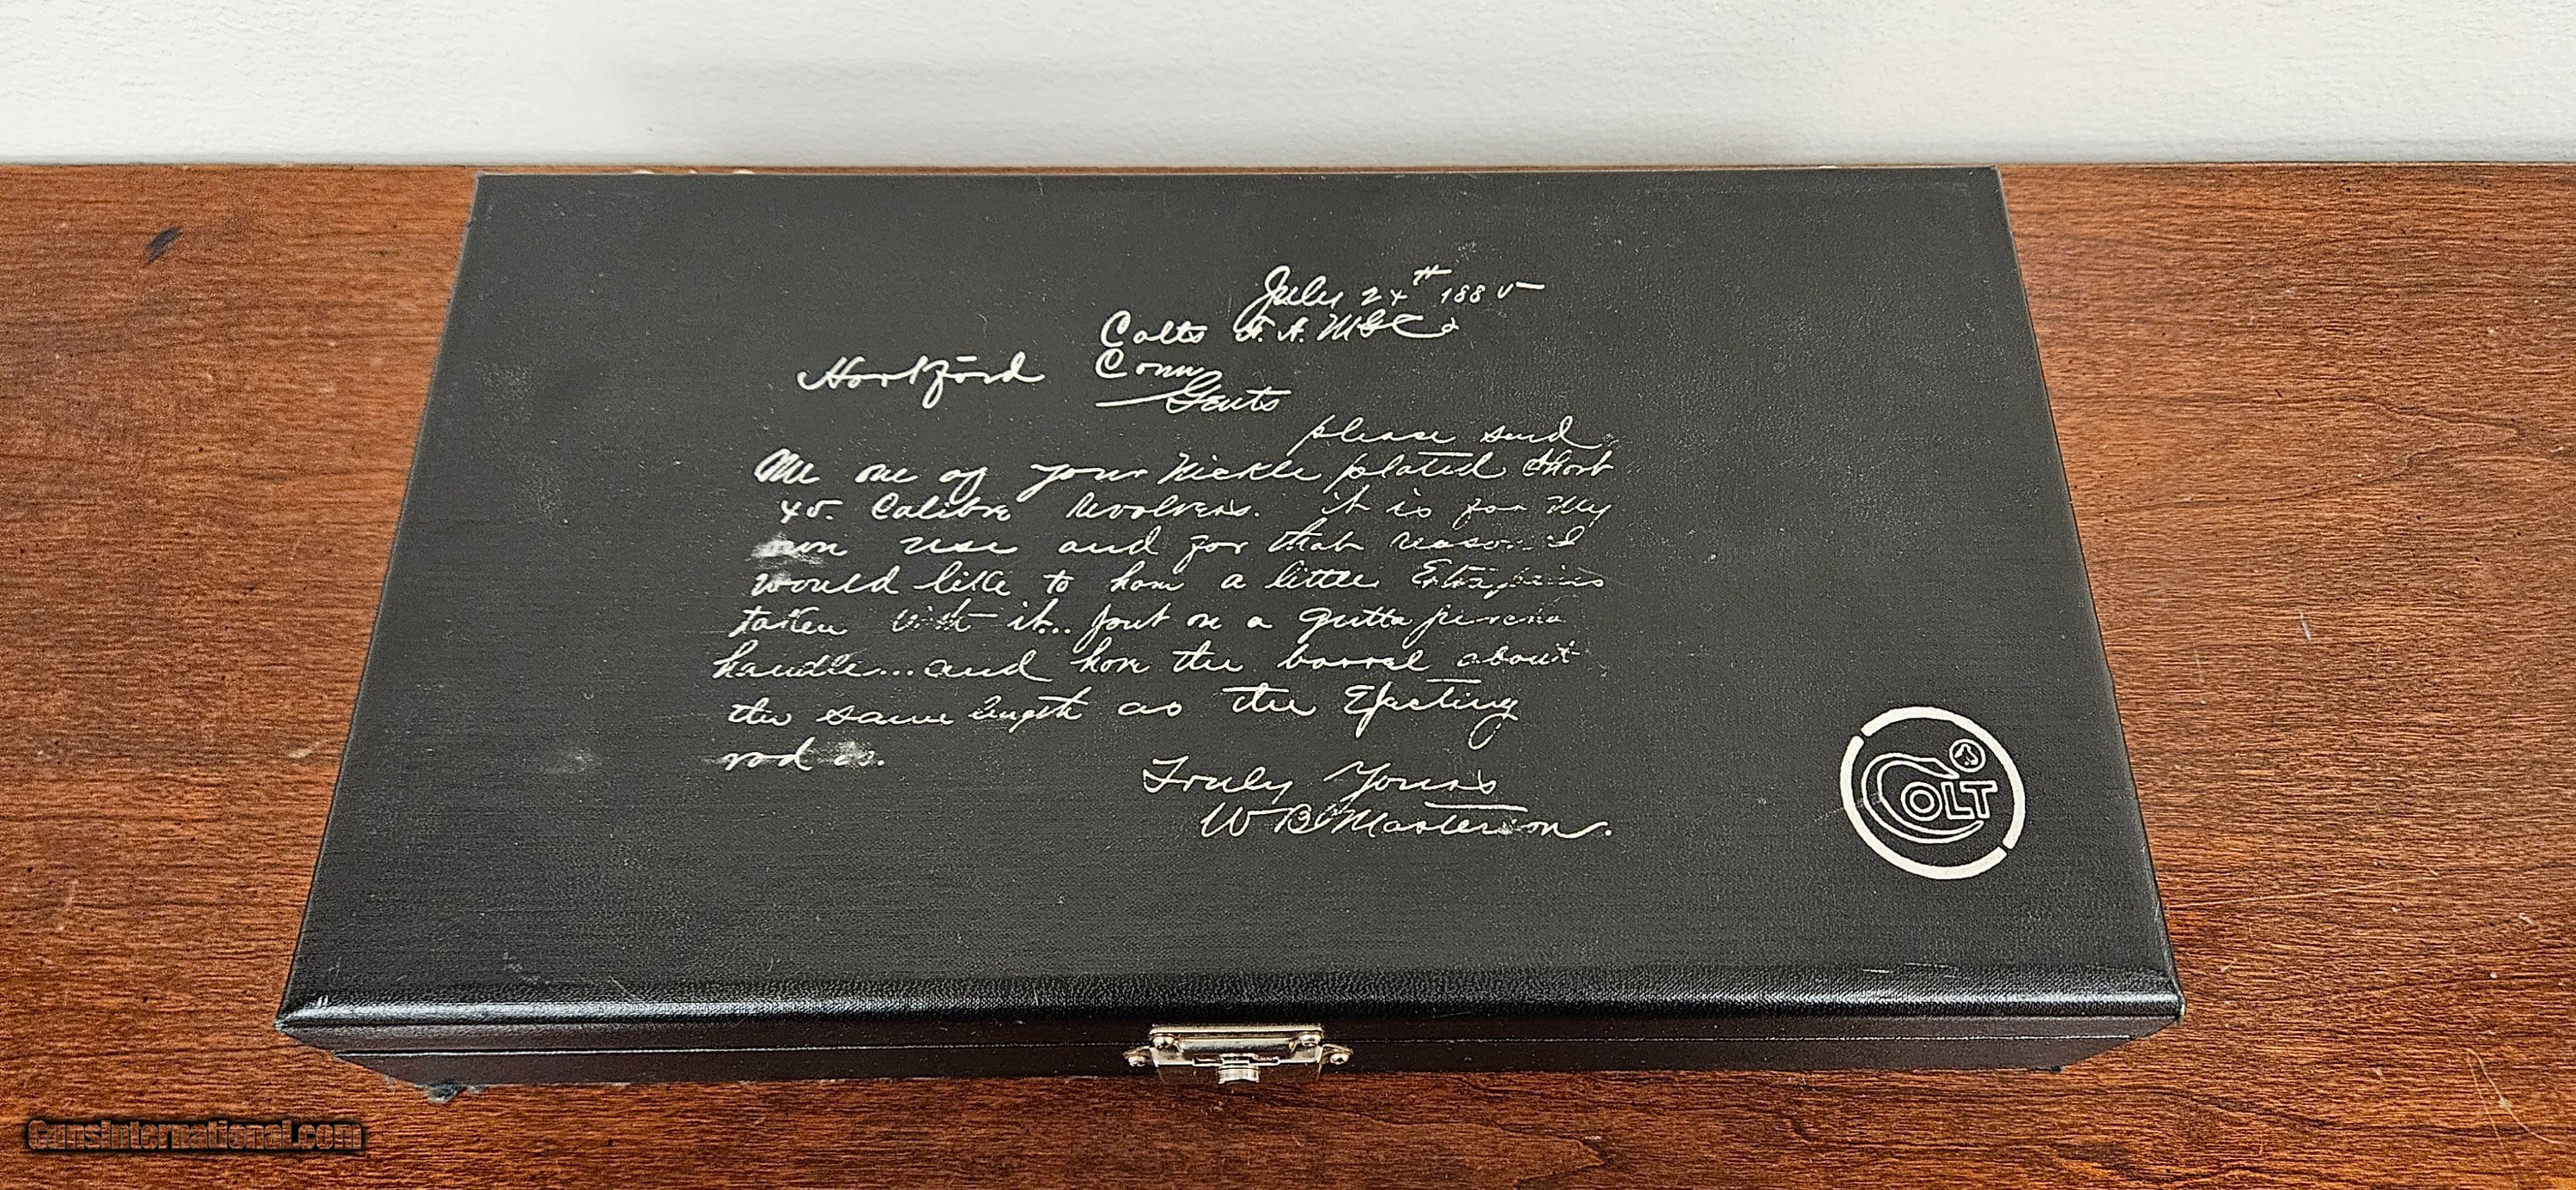 July 24th 1885
Colts F. A. MGC
Hartford Conn
Gents
please send
Me one of your Nickle plated short
45. Calibre Revolvers. it is for My
own use and for that reason I
would like to have a little Extra pains
taken with it... put on a gutta percha
handle... and have the barrel about
the same length as the Ejecting
rod is.
Truly Yours
W B Masterson.
COLT
GunsInternational.com